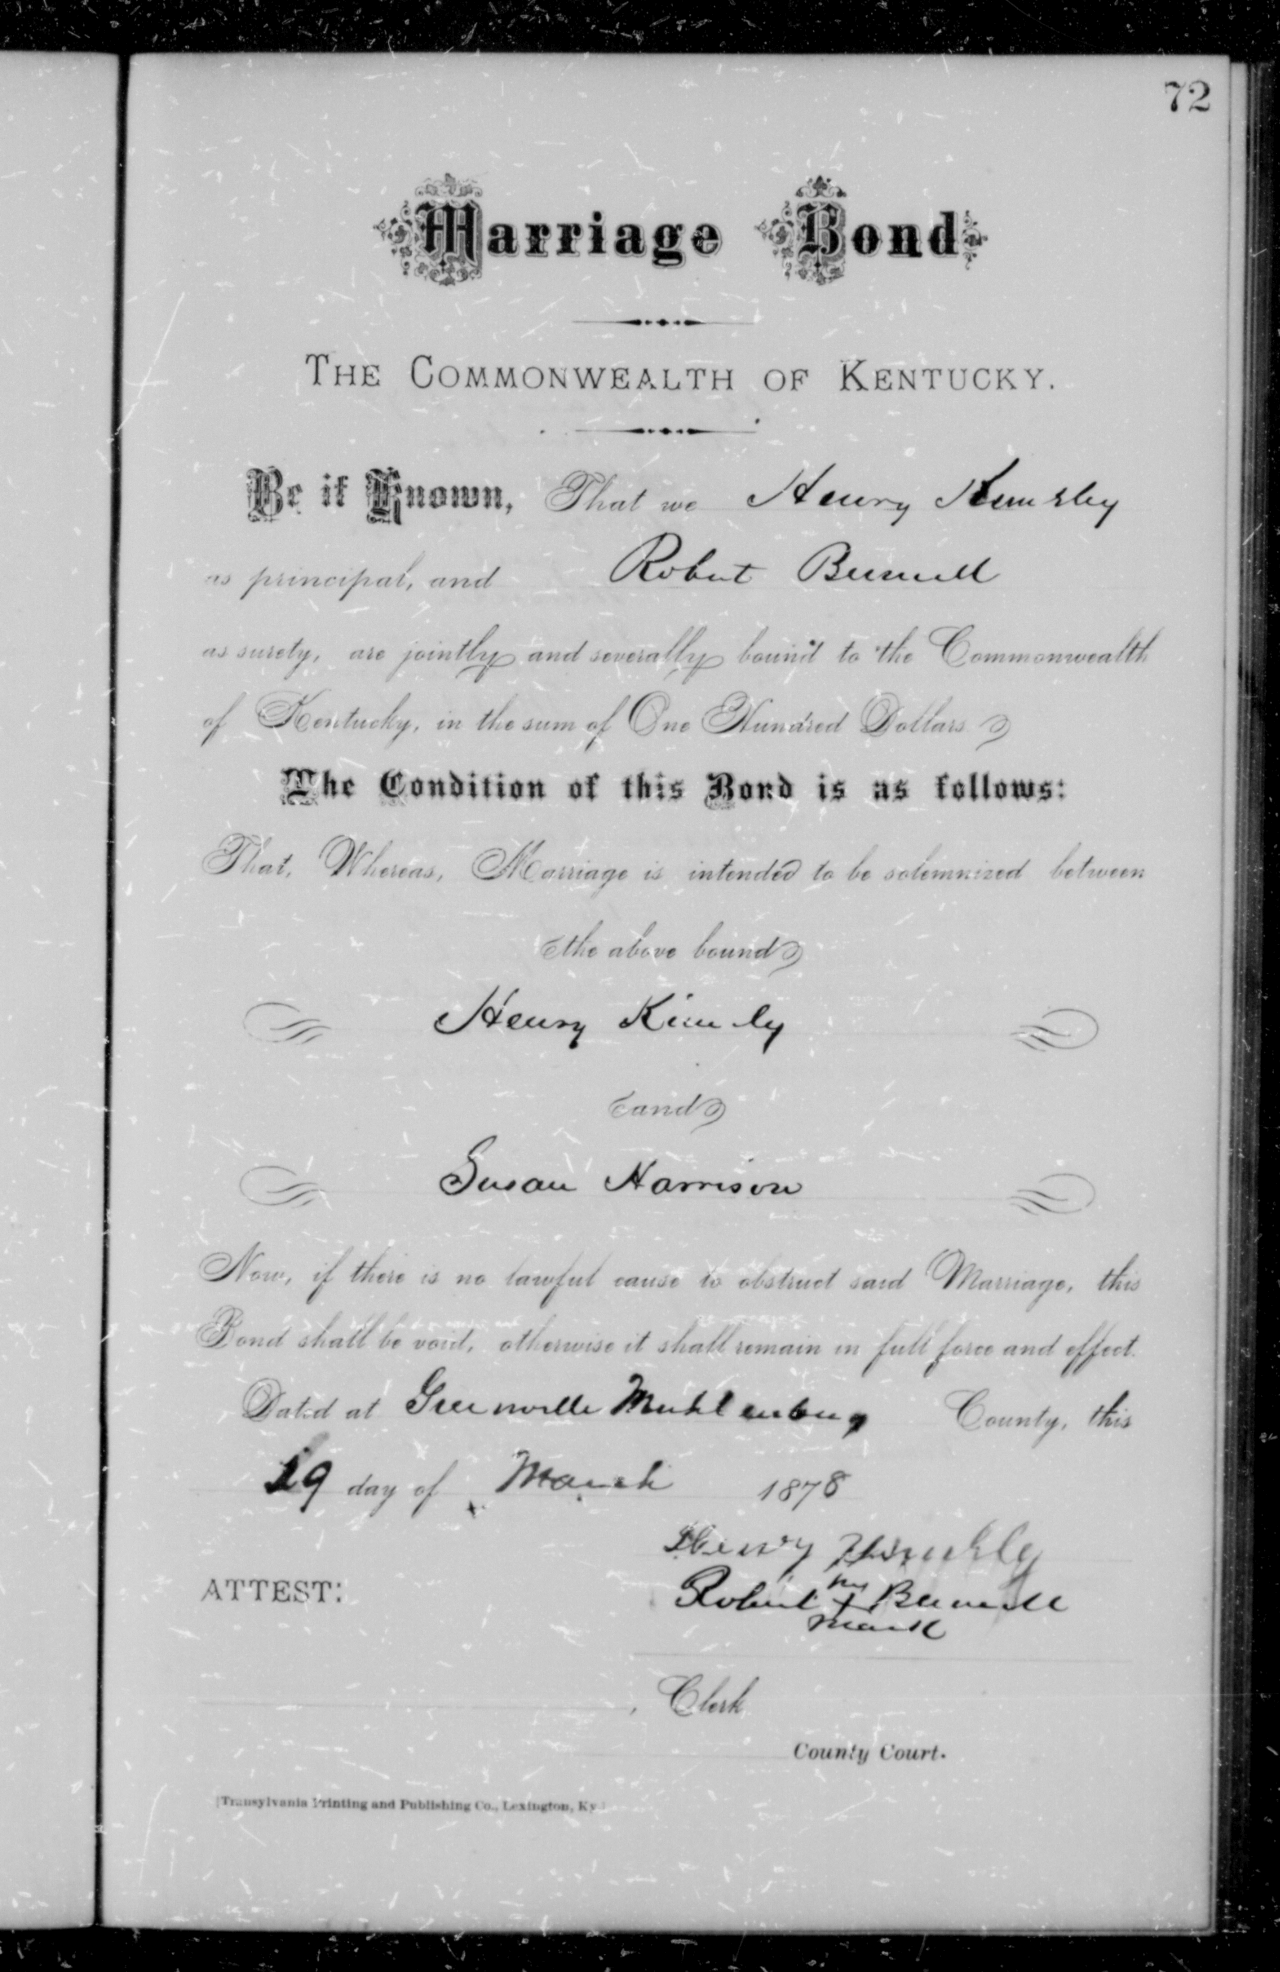 72
Marriage Bond
THE COMMONWEALTH OF KENTUCKY.
Be it Known, That we Henry
as principal, and Robert
as surety, are jointly and severally bound to the Commonwealth
of Kentucky, in the sum of One Hundred Dollars
The Condition of this Bond is as follows:
That, Whereas, Marriage is intended to be solemnized between
the above bound
Henry
and
Susan Harrison
Now, if there is no lawful cause to obstruct said Marriage, this
Bond shall be void, otherwise it shall remain in full force and effect.
Dated at Greenville Muhlenburg County, this
19 day of March 1878
Henry
his
ATTEST: Robert X
mark
, Clerk
County Court.
[Transylvania Printing and Publishing Co., Lexington, Ky.]